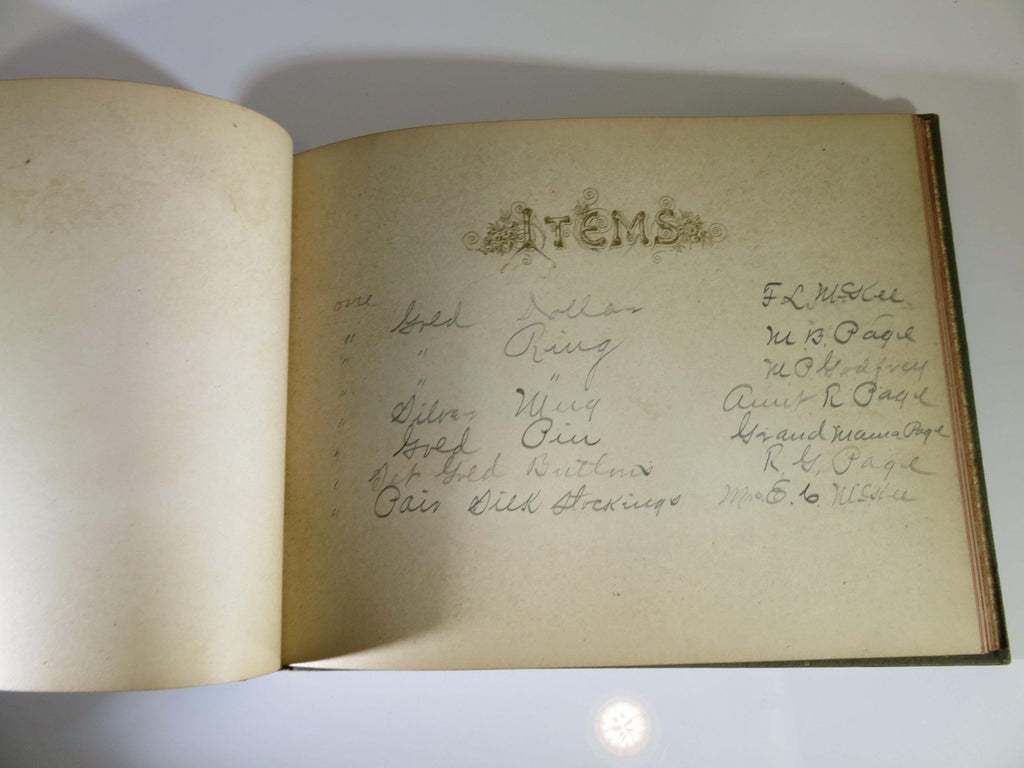 ITEMS
one Gold Dollar F. L. McKee
" " Ring M. B. Page
" " " M P Godfrey
" Silver Mug Aunt R Page
" Gold Pin Grand mama Page
" Set Gold Buttons R. G. Page
" Pair Silk Stockings Mrs. E. C. McKee